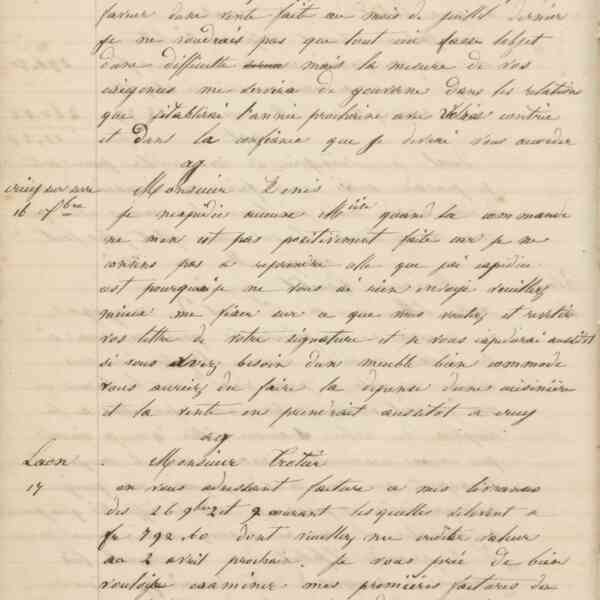 faveur dune vente fait au mois de juillet dernier
je ne voudrais pas que tout ceci fasse lobjet
dune difficulté mais la mesure de vos
exigences me servira de gouverne dans les relations
que jétablirai lannée prochaine avec contrée
et dans la confiance que je devrai vous accorder
ag
Monsieur Denis
16 7bre
je nexpédie aucune Mise quand la commande
ne men est pas positivement faite car je ne
consens pas a reprendre celle que jai expédiée
cest pourquoi je ne vous ai rien envoyé veuillez
mieux me fixer sur ce que vous voulez et revêtir
vos lettre de votre signature et je vous expédirai aussitôt
si vous avez besoin dun meuble bien commode
vous auriez du faire la dépense dune cuisinière
et la vente en prendrait aussitôt a crecy
ag
Laon
Monsieur
17
en vous adressant facture a mes livraisons
des 26 et courant lesquelles sélèvent a
fr 792.60 dont veuillez me créditer valeur
au 2 avril prochain. Je vous prie de bien
vouloir examiner mes premières factures du